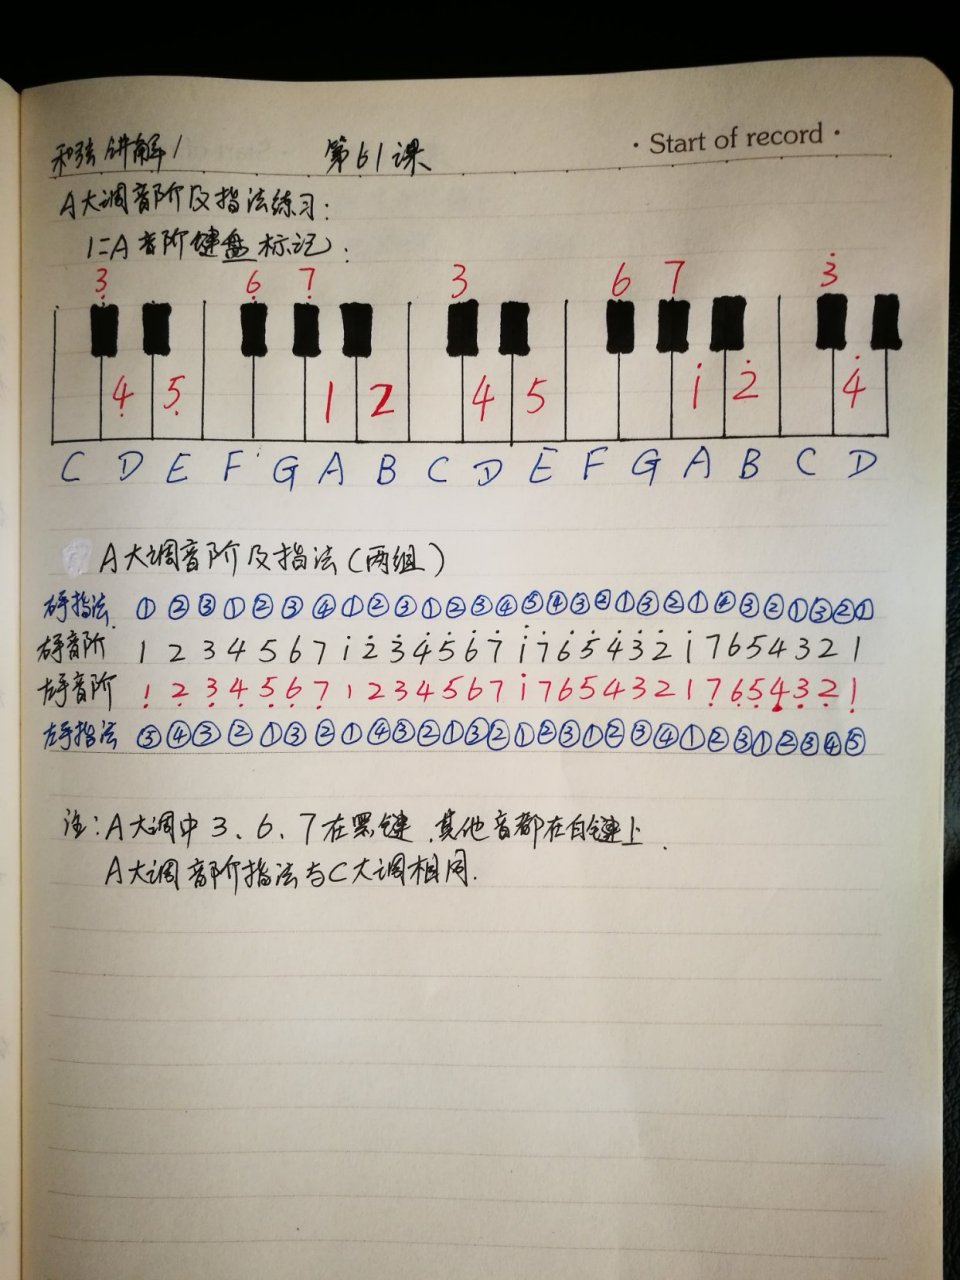 · Start of record ·
和弦讲解1 第61课
A大调音阶及指法练习:
1=A音阶键盘标记:
3̣ 6̣ 7̣ 3 6 7 3̇
4̣ 5̣ 1 2 4 5 1̇ 2̇ 4̇
C D E F G A B C D E F G A B C D
A大调音阶及指法(两组)
右手指法 ①②③①②③④①②③①②③④⑤④③②①③②①④③②①③②①
右手音阶 1 2 3 4 5 6 7 1̇ 2̇ 3̇ 4̇ 5̇ 6̇ 7̇ 1̈ 7̇ 6̇ 5̇ 4̇ 3̇ 2̇ 1̇ 7 6 5 4 3 2 1
左手音阶 1̣ 2̣ 3̣ 4̣ 5̣ 6̣ 7̣ 1 2 3 4 5 6 7 1̇ 7 6 5 4 3 2 1 7̣ 6̣ 5̣ 4̣ 3̣ 2̣ 1̣
左手指法 ⑤④③②①③②①④③②①③②①②③①②③④①②③①②③④⑤
注:A大调中3、6、7在黑键,其他音都在白键上.
A大调音阶指法与C大调相同.